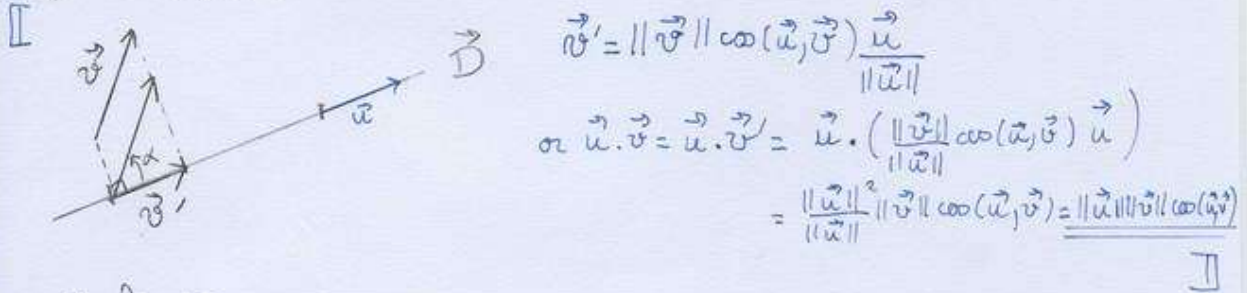 ⟦
v⃗
α
v⃗'
u⃗
D⃗
v⃗' = ||v⃗|| cos(u⃗,v⃗) u⃗/||u⃗||
or u⃗.v⃗ = u⃗.v⃗' = u⃗.(||v⃗||/||u⃗|| cos(u⃗,v⃗) u⃗)
= ||u⃗||²/||u⃗|| ||v⃗|| cos(u⃗,v⃗) = ||u⃗|| ||v⃗|| cos(u⃗,v⃗)
⟧